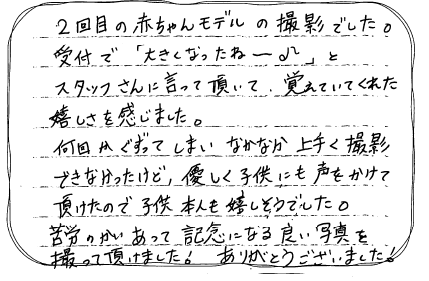 2回目の赤ちゃんモデルの撮影でした。
受付で「大きくなったねー♪」と
スタッフさんに言って頂いて、覚えていてくれた
嬉しさを感じました。
何回かぐずってしまい なかなか 上手く撮影
できなかったけど、優しく子供にも声をかけて
頂けたので子供本人も嬉しそうでした。
苦労のかいあって記念になる良い写真を
撮って頂けました! ありがとうございました!